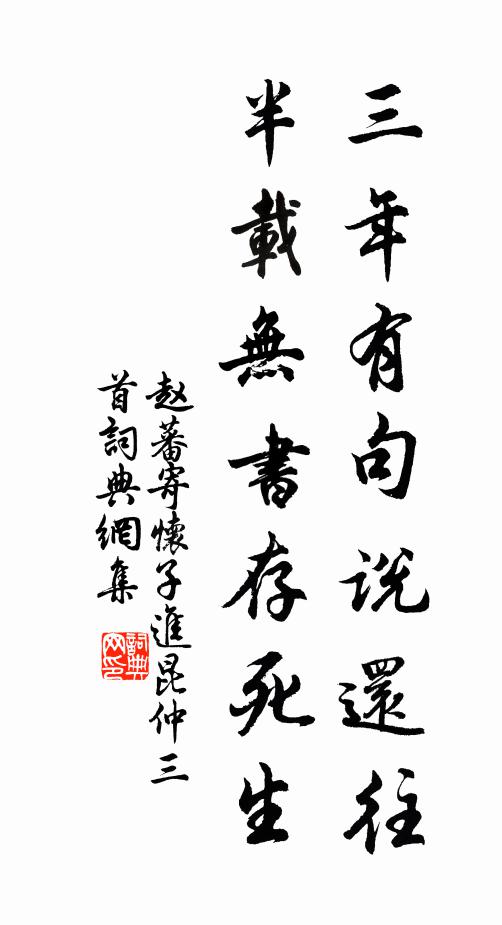 三年有句說還往
半載無書存死生
赵蕃寄懷子進昆仲三
首詞典網集
詞典
网印